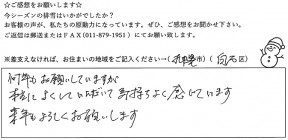 ☆ご感想をお願いします☆
今シーズンの排雪はいかがでしたか？
お客様の声が、私たちの原動力になっています。ぜひ、ご感想をお聞かせ下さい。
ご返信は郵送またはFAX（011-879-1951）にてお願い致します。
※差支えなければ、お住まいの地域をご記入ください→（札幌市）（白石区）
何年もお願いしていますが
本当によくしていただいて気持ちよく感じています
来年もよろしくお願いします